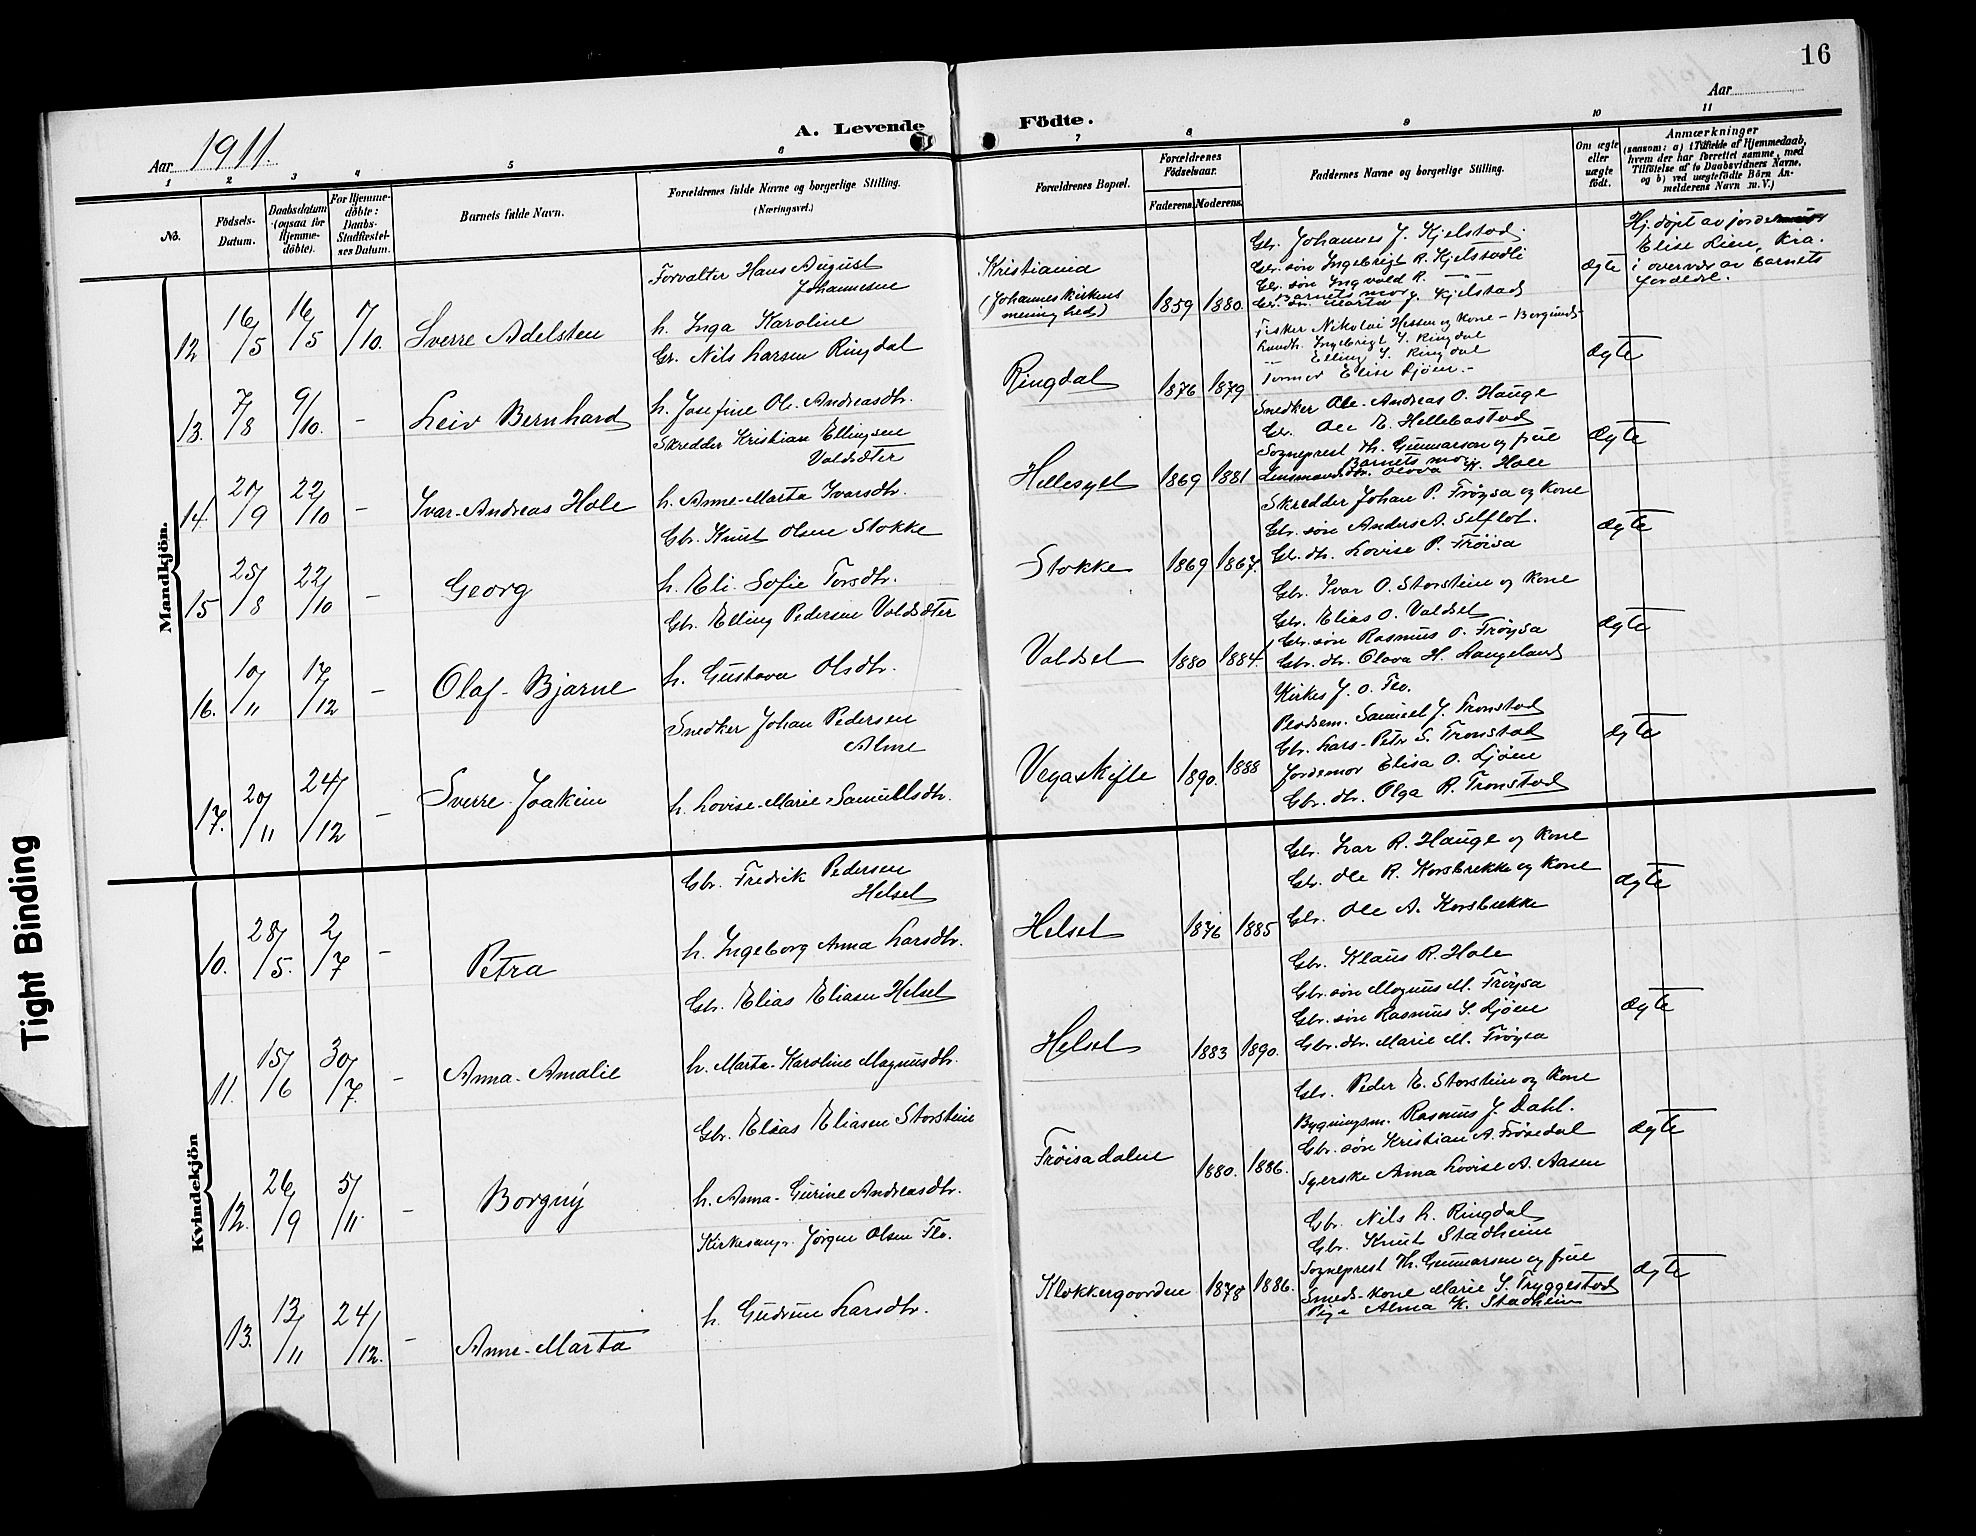 16
Aar 1911.
A. Levende Födte.
Aar
1 2 3 4 5 6 7 8 9 10 11
No.
Födsels-Datum.
Daabsdatum (ogsaa for Hjemme-döbte).
For Hjemme-döbte: Daabs-Stadfæstel-ses Datum.
Barnets fulde Navn.
Forældrenes fulde Navne og borgerlige Stilling. (Næringsvei.)
Forældrenes Bopæl.
Forældrenes Födselsaar.
Faderens. Moderens.
Faddernes Navne og borgerlige Stilling.
Om ægte eller uægte födt.
Anmærkninger
(saasom: a) i Tilfælde af Hjemmedaab, hvem der har forrettet samme, med Tilföielse af to Daabsvidners Navne, og b) ved uægtefödte Börn An-melderens Navn m. V.)
Mandkjön.
12 16/5 16/5 1/10. Sverre Adelsten
Forvalter Hans August
Johannesen
h. Inga Karoline
Kristiania
(Johanneskirkens
menighed)
1859 1880.
Gbr. Johannes J. Kjelstad.
Gbr. søn Ingebrigt R. Kjelstadli
Gbr. søn Ingvald R. — " —
Barnets mor
Gbr. dtr. Marta J. Kjelstad
ægte
Hj. døpt av jordemor
Elise Lien, Kra.
i overvær av barnets
foreldre.
13. 7/8 9/10. - Leiv Bernhard
Gbr. Nils Larsen Ringdal
h. Josefine Ol. Andreasdtr.
Ringdal
1876 1879
Fisker Nikolai Hessen og kone - Borgund
Landh. Ingebrigt S. Ringdal
Elling S. Ringdal
Jormor Elise Ljøen.-
ægte
14 21/9 22/10 - Ivar-Andreas Hole
Skredder Kristian Ellingsen
Voldsæter
h. Anne-Marta Ivarsdtr.
Hellesylt
1869 1881
Snedker Ole-Andreas O. Hauge
Gbr. Ole E. Hellebostad
Sogneprest Th. Gunnarson og frue
Barnets mor
Lensmandsdtr. Olava K. Hole
ægte
15 25/8 22/10 - Georg
Gbr. Knut Olsen Stokke
h. Eli-Sofie Torsdtr.
Stokke
1869 1867.
Skredder Johan P. Frøysa og kone
Gbr. søn Anders A. Selflot.
Gbr. dtr. Lovise P. Frøisa
ægte
16. 10/11 17/12 - Olaf-Bjarne
Gbr. Elling Pedersen Voldsæter
h. Gustava Olsdtr.
Voldset
1880 1884.
Gbr. Ivar O. Storstein og kone
Gbr. Elias O. Valdsel
Gbr. søn Rasmus O. Frøysa
Gbr. dtr. Olava H. Langeland
ægte
17. 20/11 24/12 - Sverre-Joakim
Snedker Johan Pedersen
Alme
h. Lovise-Marie-Samuelsdtr.
Vegaskifte
1890. 1888
Kirkes J. O. Flo.
Samuel J. Tronstad
Gbr. Lars-Peter S. Tronstad
Jordemor Elisa O. Ljøen
Gbr. dtr. Olga R. Tronstad
ægte
Kvindekjön
10. 28/5. 2/7 - Petra
Gbr. Fredrik Pedersen
Helset
h. Ingeborg Anna Larsdtr.
Helset
1876 1885
Gbr. Ivar R. Hauge og kone
Gbr. Ole R. Korsbrekke og kone
Gbr. Ole A. Korsbrekke
ægte
11. 15/6 30/7. - Anna-Amalie
Gbr. Elias Eliasen Helset
h. Marta-Karoline Magnusdtr.
Helset
1883 1890.
Gbr. Klaus R. Hole
Gbr. søn Magnus M. Frøysa
Gbr. søn Rasmus S. Ljøen
Gbr. dtr. Marie M. Frøysa
ægte
12. 26/9 5/11. - Borgny
Gbr. Elias Eliasen Storstein
h. Anna-Gurine Andreasdtr.
Frøisadalen
1880. 1886.
Gbr. Peder E. Storstein og kone
Bygningsm. Rasmus J. Dahl.
Gbr. søn Kristian A. Frøsedal
Syerske Anna Lovise A. Aasen
ægte
13. 13/11 24/12. - Anne-Marta
Kirkesanger Jørgen Olsen Flo.
h. Gudrun Larsdtr.
Klokkergaarden
1878 1886.
Gbr. Nils L. Ringdal
Gbr. Knut Stadheim
Sogneprest Th. Gunnarson og frue
Smeds-kone Marie S. Tryggestad
Pige Alma K. Stadheim
ægte
Tight Binding